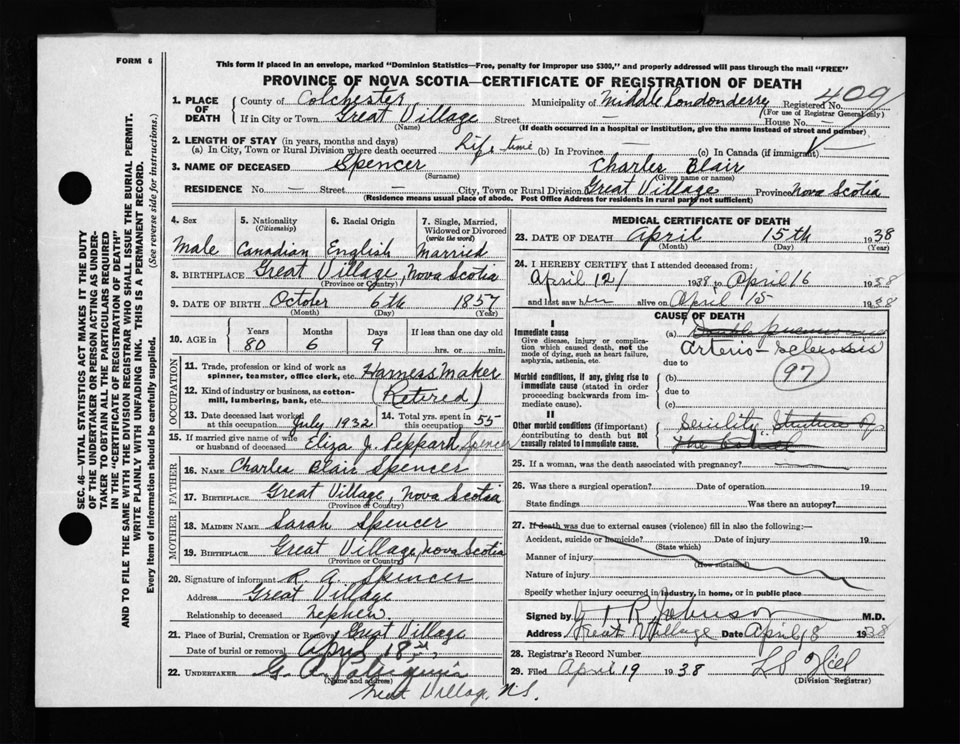 FORM 6
This form if placed in an envelope, marked "Dominion Statistics—Free, penalty for improper use $300," and properly addressed will pass through the mail "FREE"
PROVINCE OF NOVA SCOTIA—CERTIFICATE OF REGISTRATION OF DEATH
409
1. PLACE OF DEATH
County of Colchester Municipality of Middle Londonderry Registered No.
(For use of Registrar General only)
If in City or Town Great Village Street — House No. —
(Name) (If death occurred in a hospital or institution, give the name instead of street and number)
2. LENGTH OF STAY (in years, months and days)
(a) In City, Town or Rural Division where death occurred Life-time (b) In Province (c) In Canada (if immigrant)
3. NAME OF DECEASED Spencer Charles Blair
(Surname) (Given name or names)
RESIDENCE No. — Street — City, Town or Rural Division Great Village Province Nova Scotia
(Residence means usual place of abode. Post Office Address for residents in rural parts not sufficient)
4. Sex
Male
5. Nationality (Citizenship)
Canadian
6. Racial Origin
English
7. Single, Married, Widowed or Divorced (write the word)
Married
8. BIRTHPLACE Great Village, Nova Scotia
(Province or Country)
9. DATE OF BIRTH October 6th 1857
(Month) (Day) (Year)
10. AGE in
Years Months Days If less than one day old
80 6 9 hrs. or min.
OCCUPATION
11. Trade, profession or kind of work as spinner, teamster, office clerk, etc. Harness Maker
12. Kind of industry or business, as cotton-mill, lumbering, bank, etc. (Retired)
13. Date deceased last worked at this occupation July 1932
14. Total yrs. spent in this occupation 55
15. If married give name of wife or husband of deceased Eliza J. Peppard Spencer
FATHER
16. NAME Charles Blair Spencer
17. BIRTHPLACE Great Village, Nova Scotia
(Province of Country)
MOTHER
18. MAIDEN NAME Sarah Spencer
19. BIRTHPLACE Great Village, Nova Scotia
(Province or Country)
20. Signature of informant R. A. Spencer
Address Great Village
Relationship to deceased Nephew
21. Place of Burial, Cremation or Removal Great Village
Date of burial or removal April 18
22. UNDERTAKER G. A.
(Name and address)
Great Village, N.S.
MEDICAL CERTIFICATE OF DEATH
23. DATE OF DEATH April 15th 1938
(Month) (Day) (Year)
24. I HEREBY CERTIFY that I attended deceased from
April 12 1938 to April 16 1938
and last saw him alive on April 15 1938
CAUSE OF DEATH
I
Immediate cause
Give disease, injury or complication which caused death, not the mode of dying, such as heart failure, asphyxia, asthenia, etc.
(a) Double pneumonia
Arterio-Sclerosis
due to
(97)
Morbid conditions, if any, giving rise to immediate cause (stated in order proceeding backwards from immediate cause).
(b)
due to
(c)
II
Other morbid conditions (if important) contributing to death but not causally related to immediate cause.
Senility Stricture of
the
25. If a woman, was the death associated with pregnancy?
26. Was there a surgical operation? Date of operation 19
State findings Was there an autopsy?
27. If death was due to external causes (violence) fill in also the following:—
Accident, suicide or homicide? Date of injury 19
(State which)
Manner of injury
(How sustained)
Nature of injury
Specify whether injury occurred in industry, in home, or in public place
Signed by T. R. Johnson M.D.
Address Great Village Date April 18 1938
28. Registrar's Record Number
29. Filed April 19 1938
(Division Registrar)
SEC. 46—VITAL STATISTICS ACT MAKES IT THE DUTY
OF THE UNDERTAKER OR PERSON ACTING AS UNDER-
TAKER TO OBTAIN ALL THE PARTICULARS REQUIRED
IN THE "CERTIFICATE OF REGISTRATION OF DEATH"
AND TO FILE THE SAME WITH THE DIVISION REGISTRAR WHO SHALL ISSUE THE BURIAL PERMIT.
WRITE PLAINLY WITH UNFADING INK. THIS IS A PERMANENT RECORD.
Every item of information should be carefully supplied. (See reverse side for instructions.)